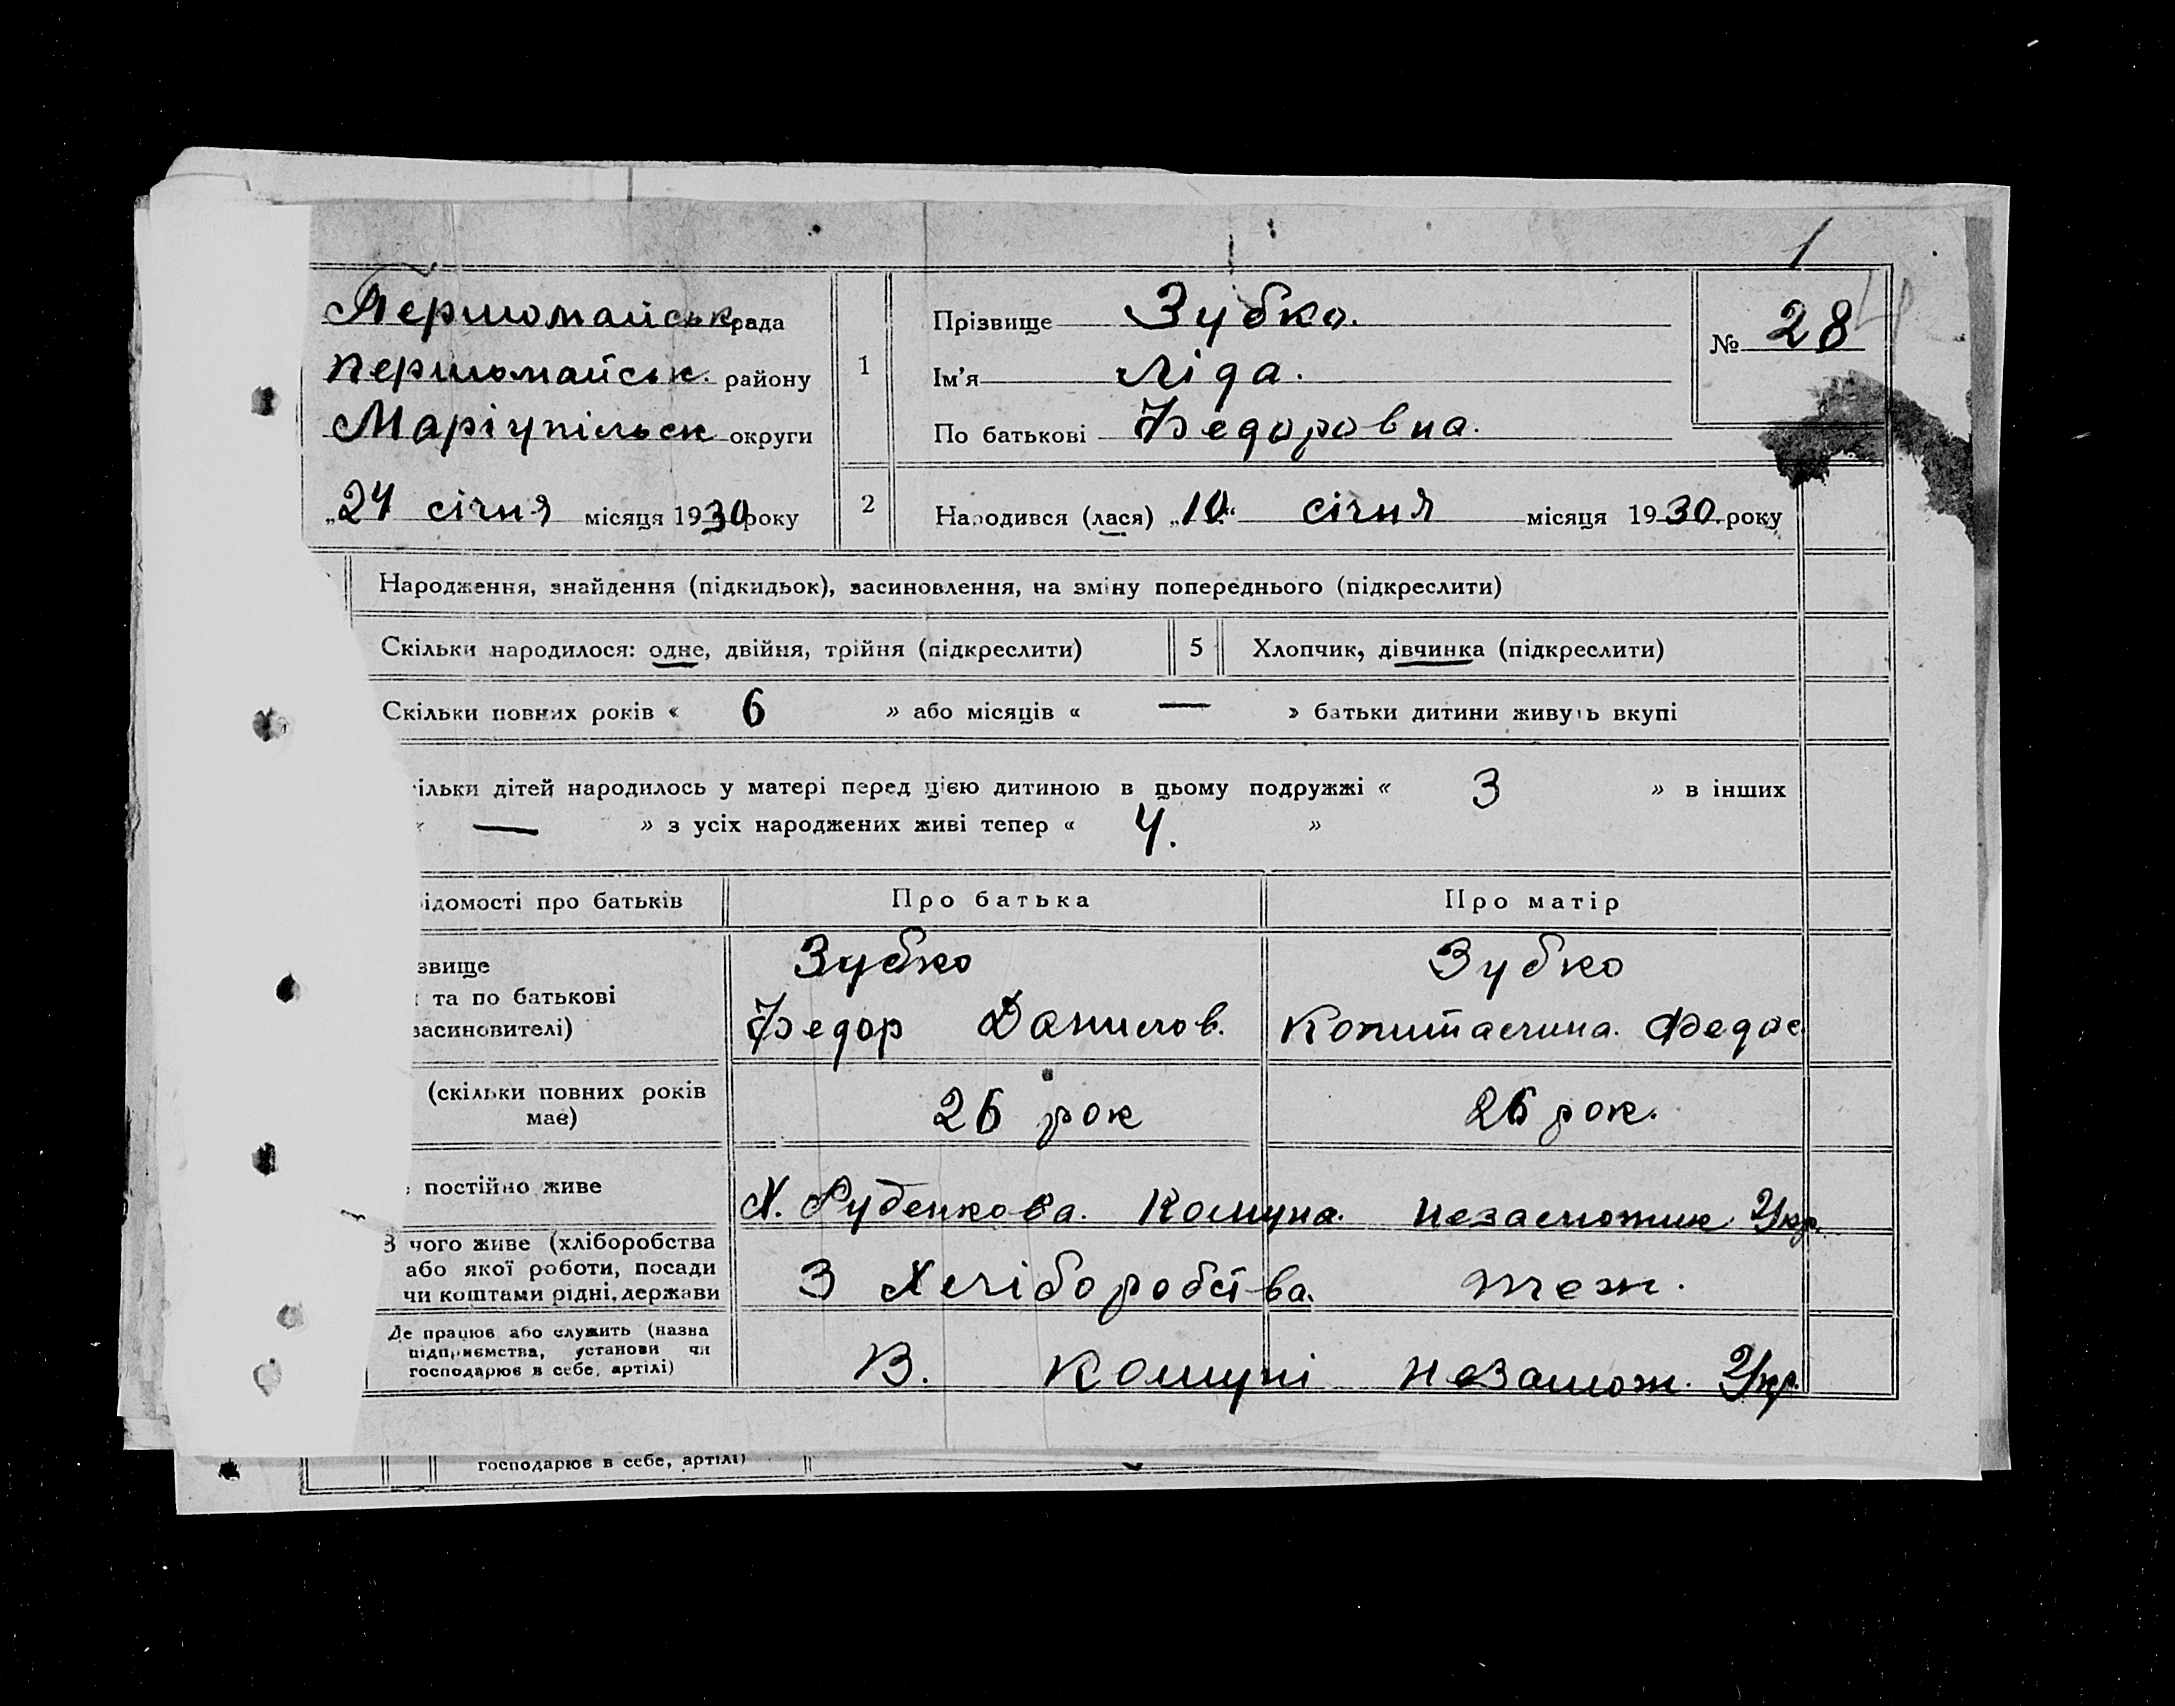 Першомайськ рада
Першомайськ. району
Маріупільск округи
„24 січня місяця 1930 року
1
Прізвище Зубко.
Ім’я Ліда.
По батькові Федоровна.
№ 28
2
Народився (лася) „10“ січня місяця 1930. року
Народження, знайдення (підкидьок), засиновлення, на зміну попереднього (підкреслити)
Скільки народилося: одне, двійня, трійня (підкреслити)
5
Хлопчик, дівчинка (підкреслити)
Скільки повних років « 6 » або місяців « — » батьки дитини живуть вкупі
ільки дітей народилось у матері перед цією дитиною в цьому подружжі « 3 » в інших
« — » з усіх народжених живі тепер « 4. »
ідомості про батьків
Про батька
Про матір
звище
та по батькові
засиновителі)
Зубко
Федор Данилов.
Зубко
Федос
(скільки повних років
має)
26 рок
26 рок.
постійно живе
Х. Руденкова. Комуна. Незаможник Укр.
З чого живе (хліборобства
або якої роботи, посади
чи коштами рідні, держави
З Хліборобства.
теж.
Де працює або служить (назва
підприємства, установи чи
господарює в себе, артілі)
В. Комуні Незамож. Укр.
господарює в себе, артілі)